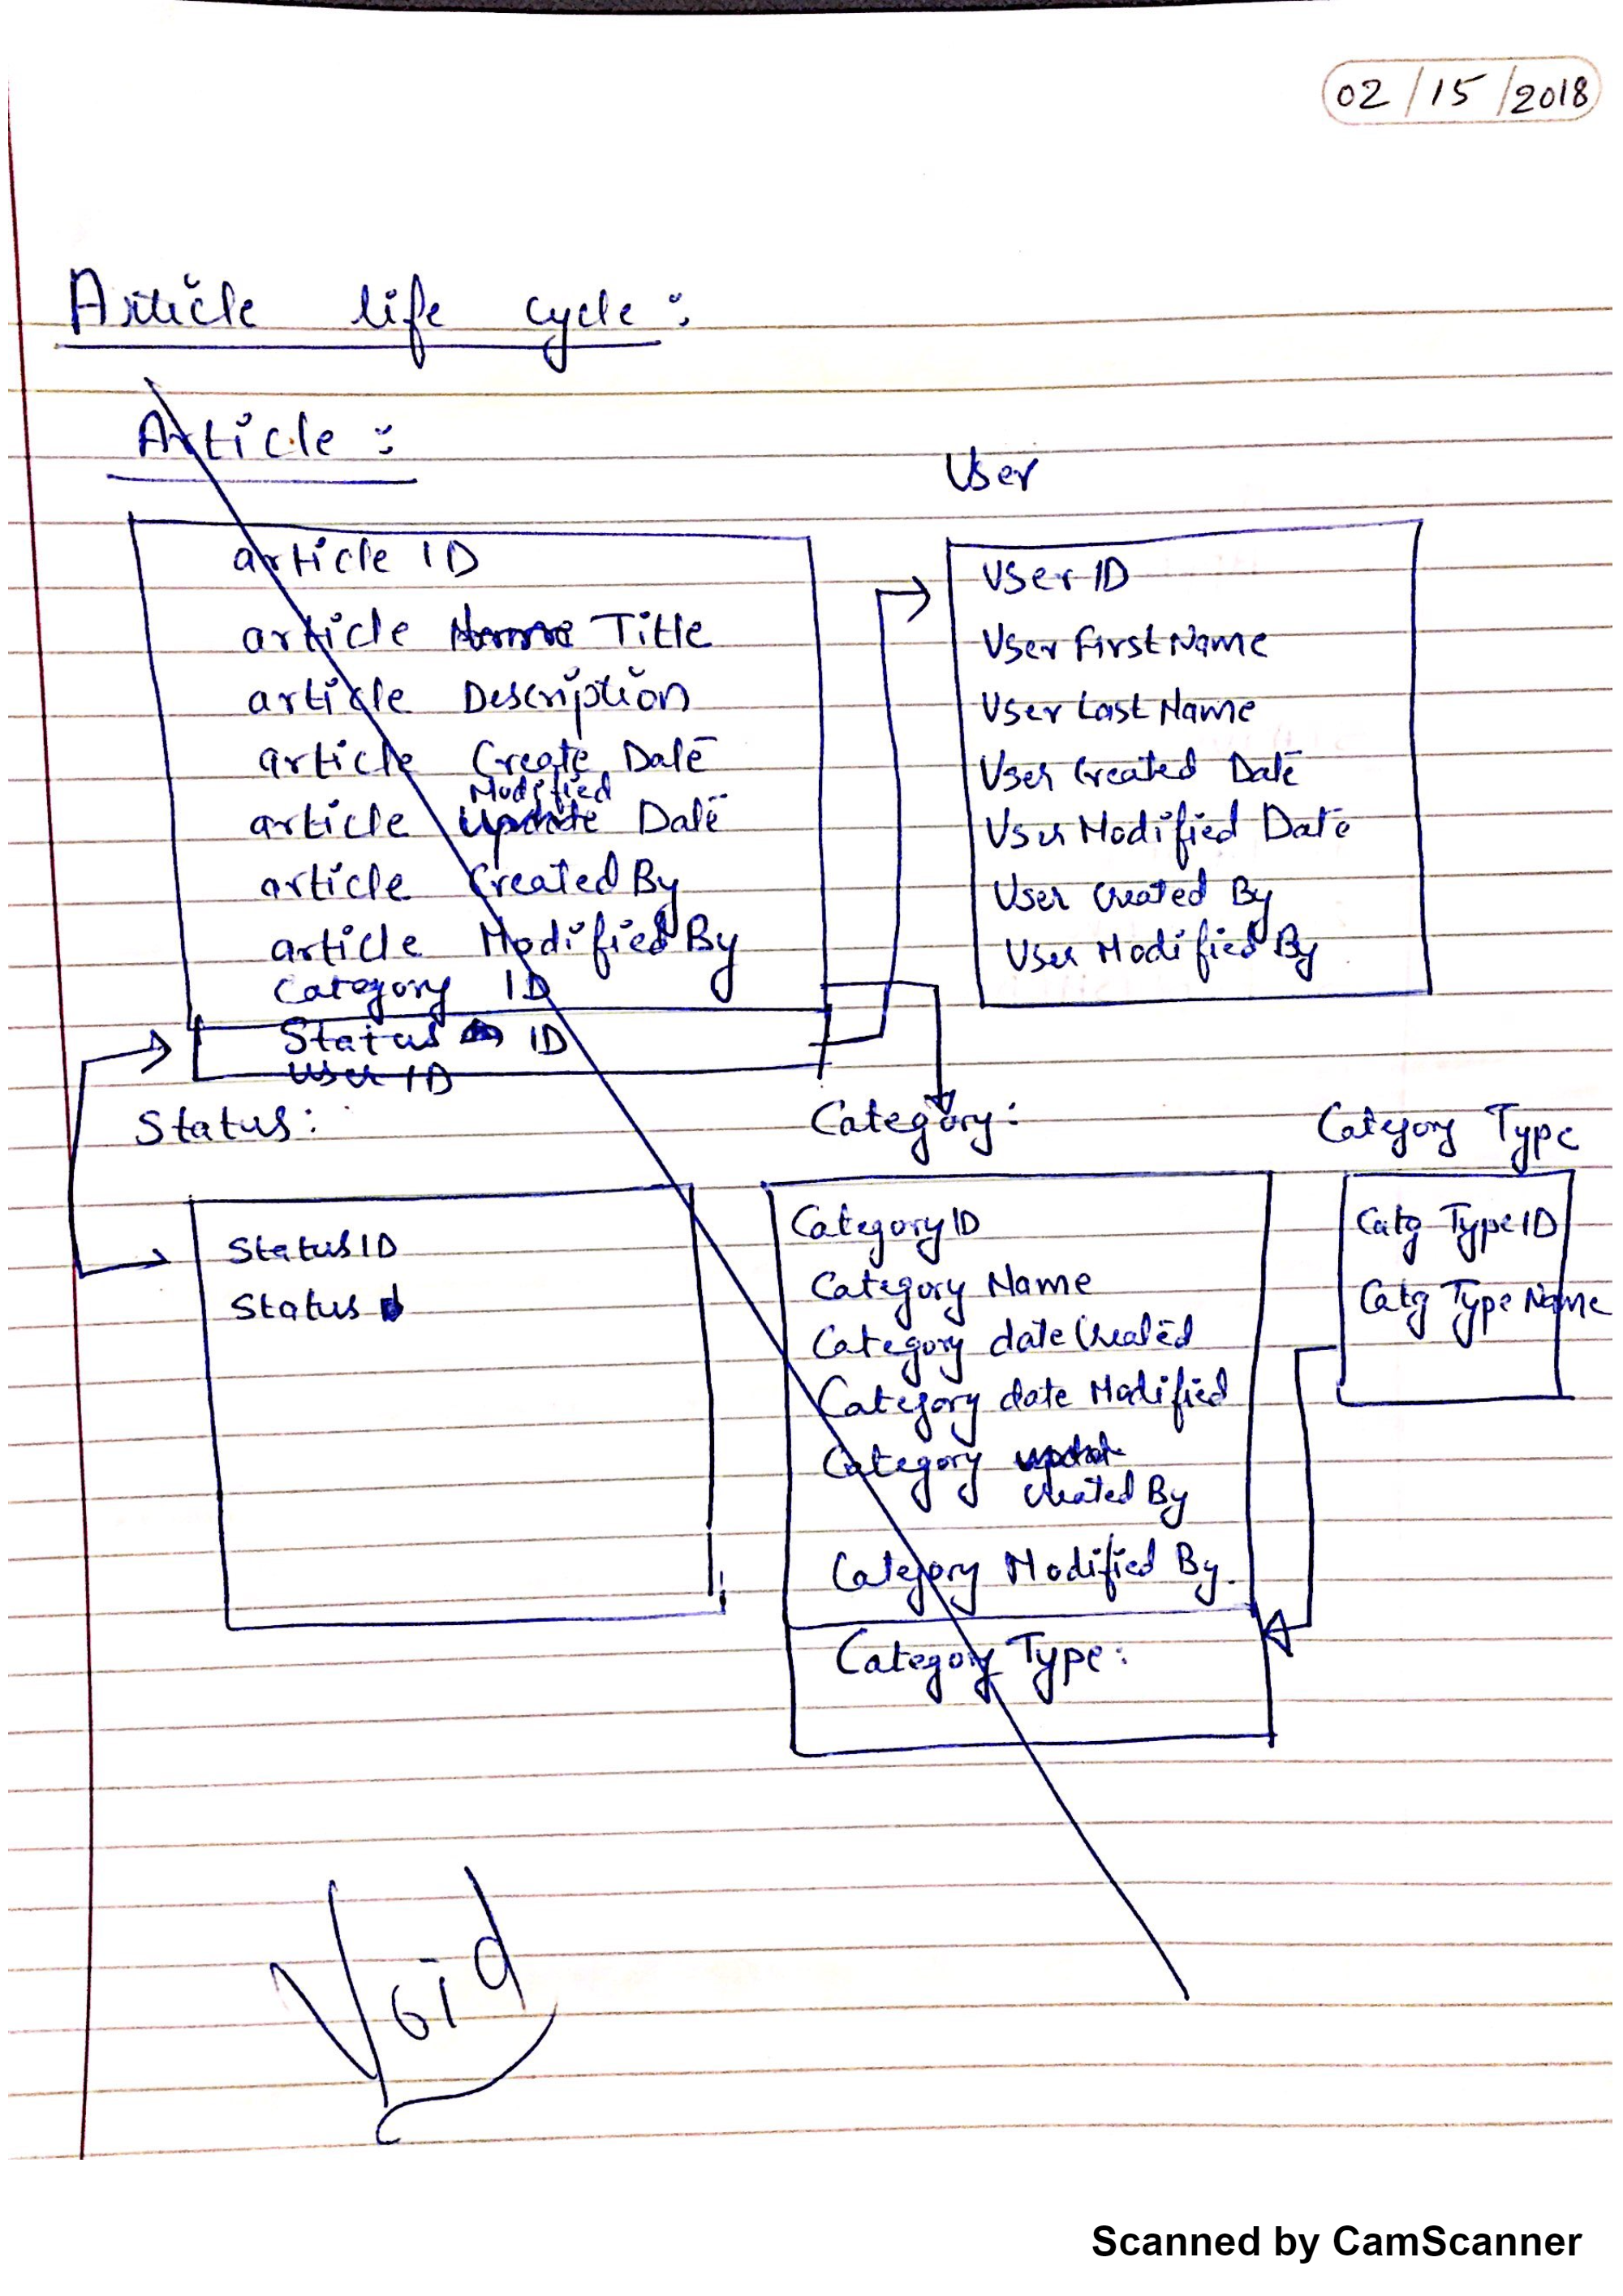 02/15/2018
Article life cycle:
Article:
article ID
article Name Title
article Description
article Create Date
Modified
article Update Date
article Created By
article Modified By
Category ID
Status ID
User ID
User
User ID
User First Name
User Last Name
User Created Date
User Modified Date
User Created By
User Modified By
Status:
Status ID
Status
Category:
Category ID
Category Name
Category date Created
Category date Modified
Category
Created By
Category Modified By.
Category Type:
Category Type
Catg Type ID
Catg Type Name
Void
Scanned by CamScanner